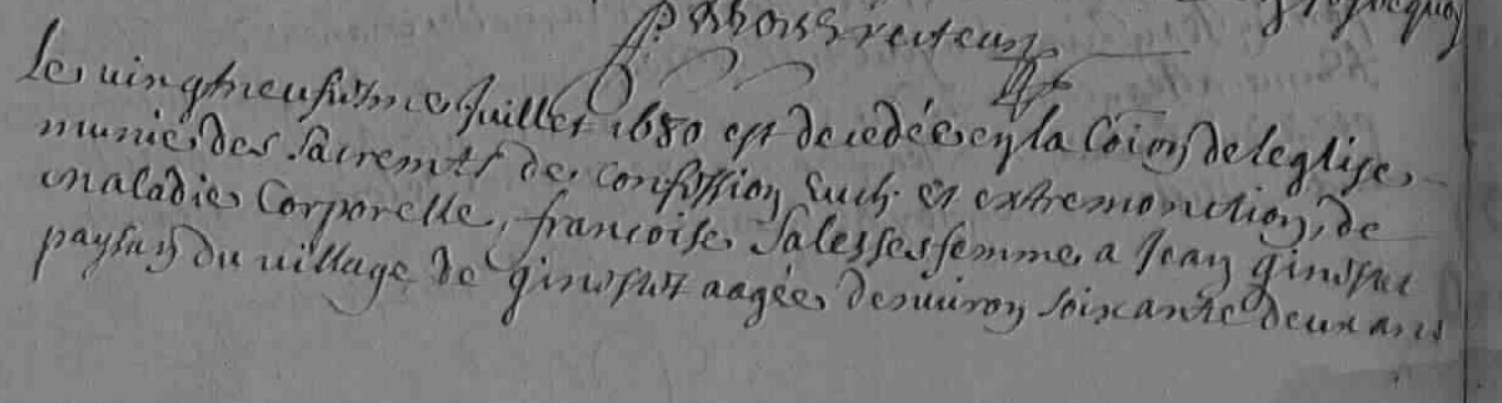 recteur
Le vingtneufviesme Juillet 1680 est decedée en la Coion de leglise,
munie des sacremts de confession, Euch. et extremonction, de
maladie Corporelle, francoise Salesses femme a Jean
paysan du village de aagée denviron soixante deux ans